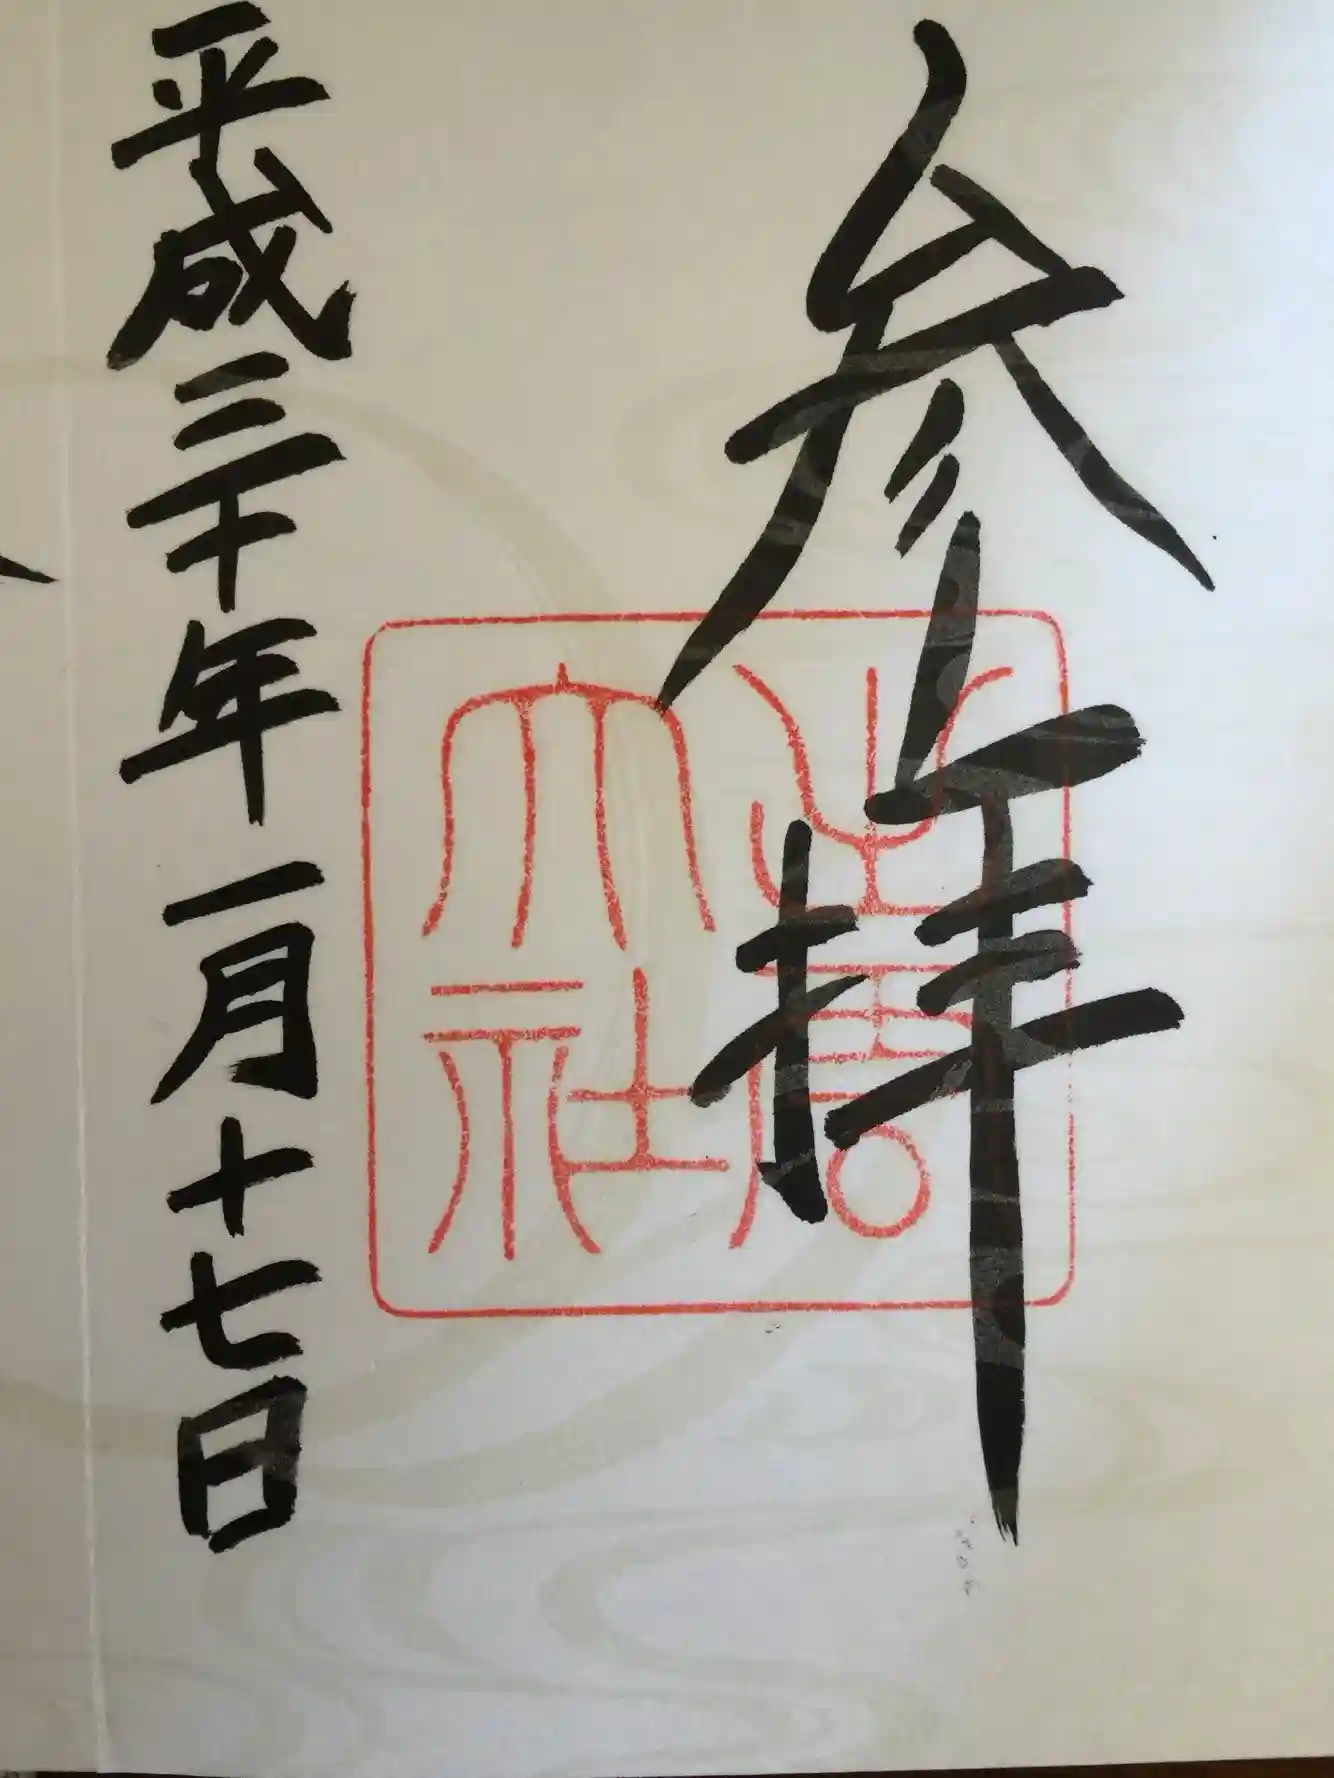 参拝
出雲
大社
平成三十年一月十七日